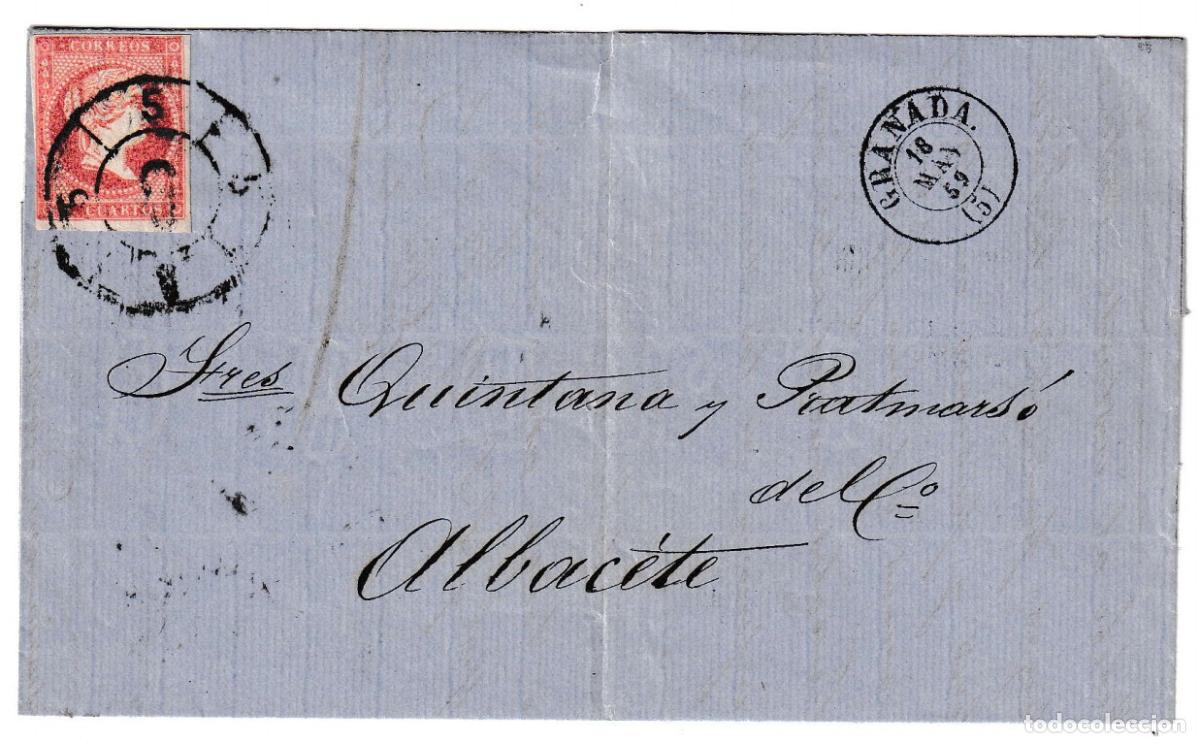 CORREOS
CUARTOS
5
GRANADA.
18
59
(5)
Sres Quintana y Pratmarsó
del Cº
Albacéte
todocoleccion